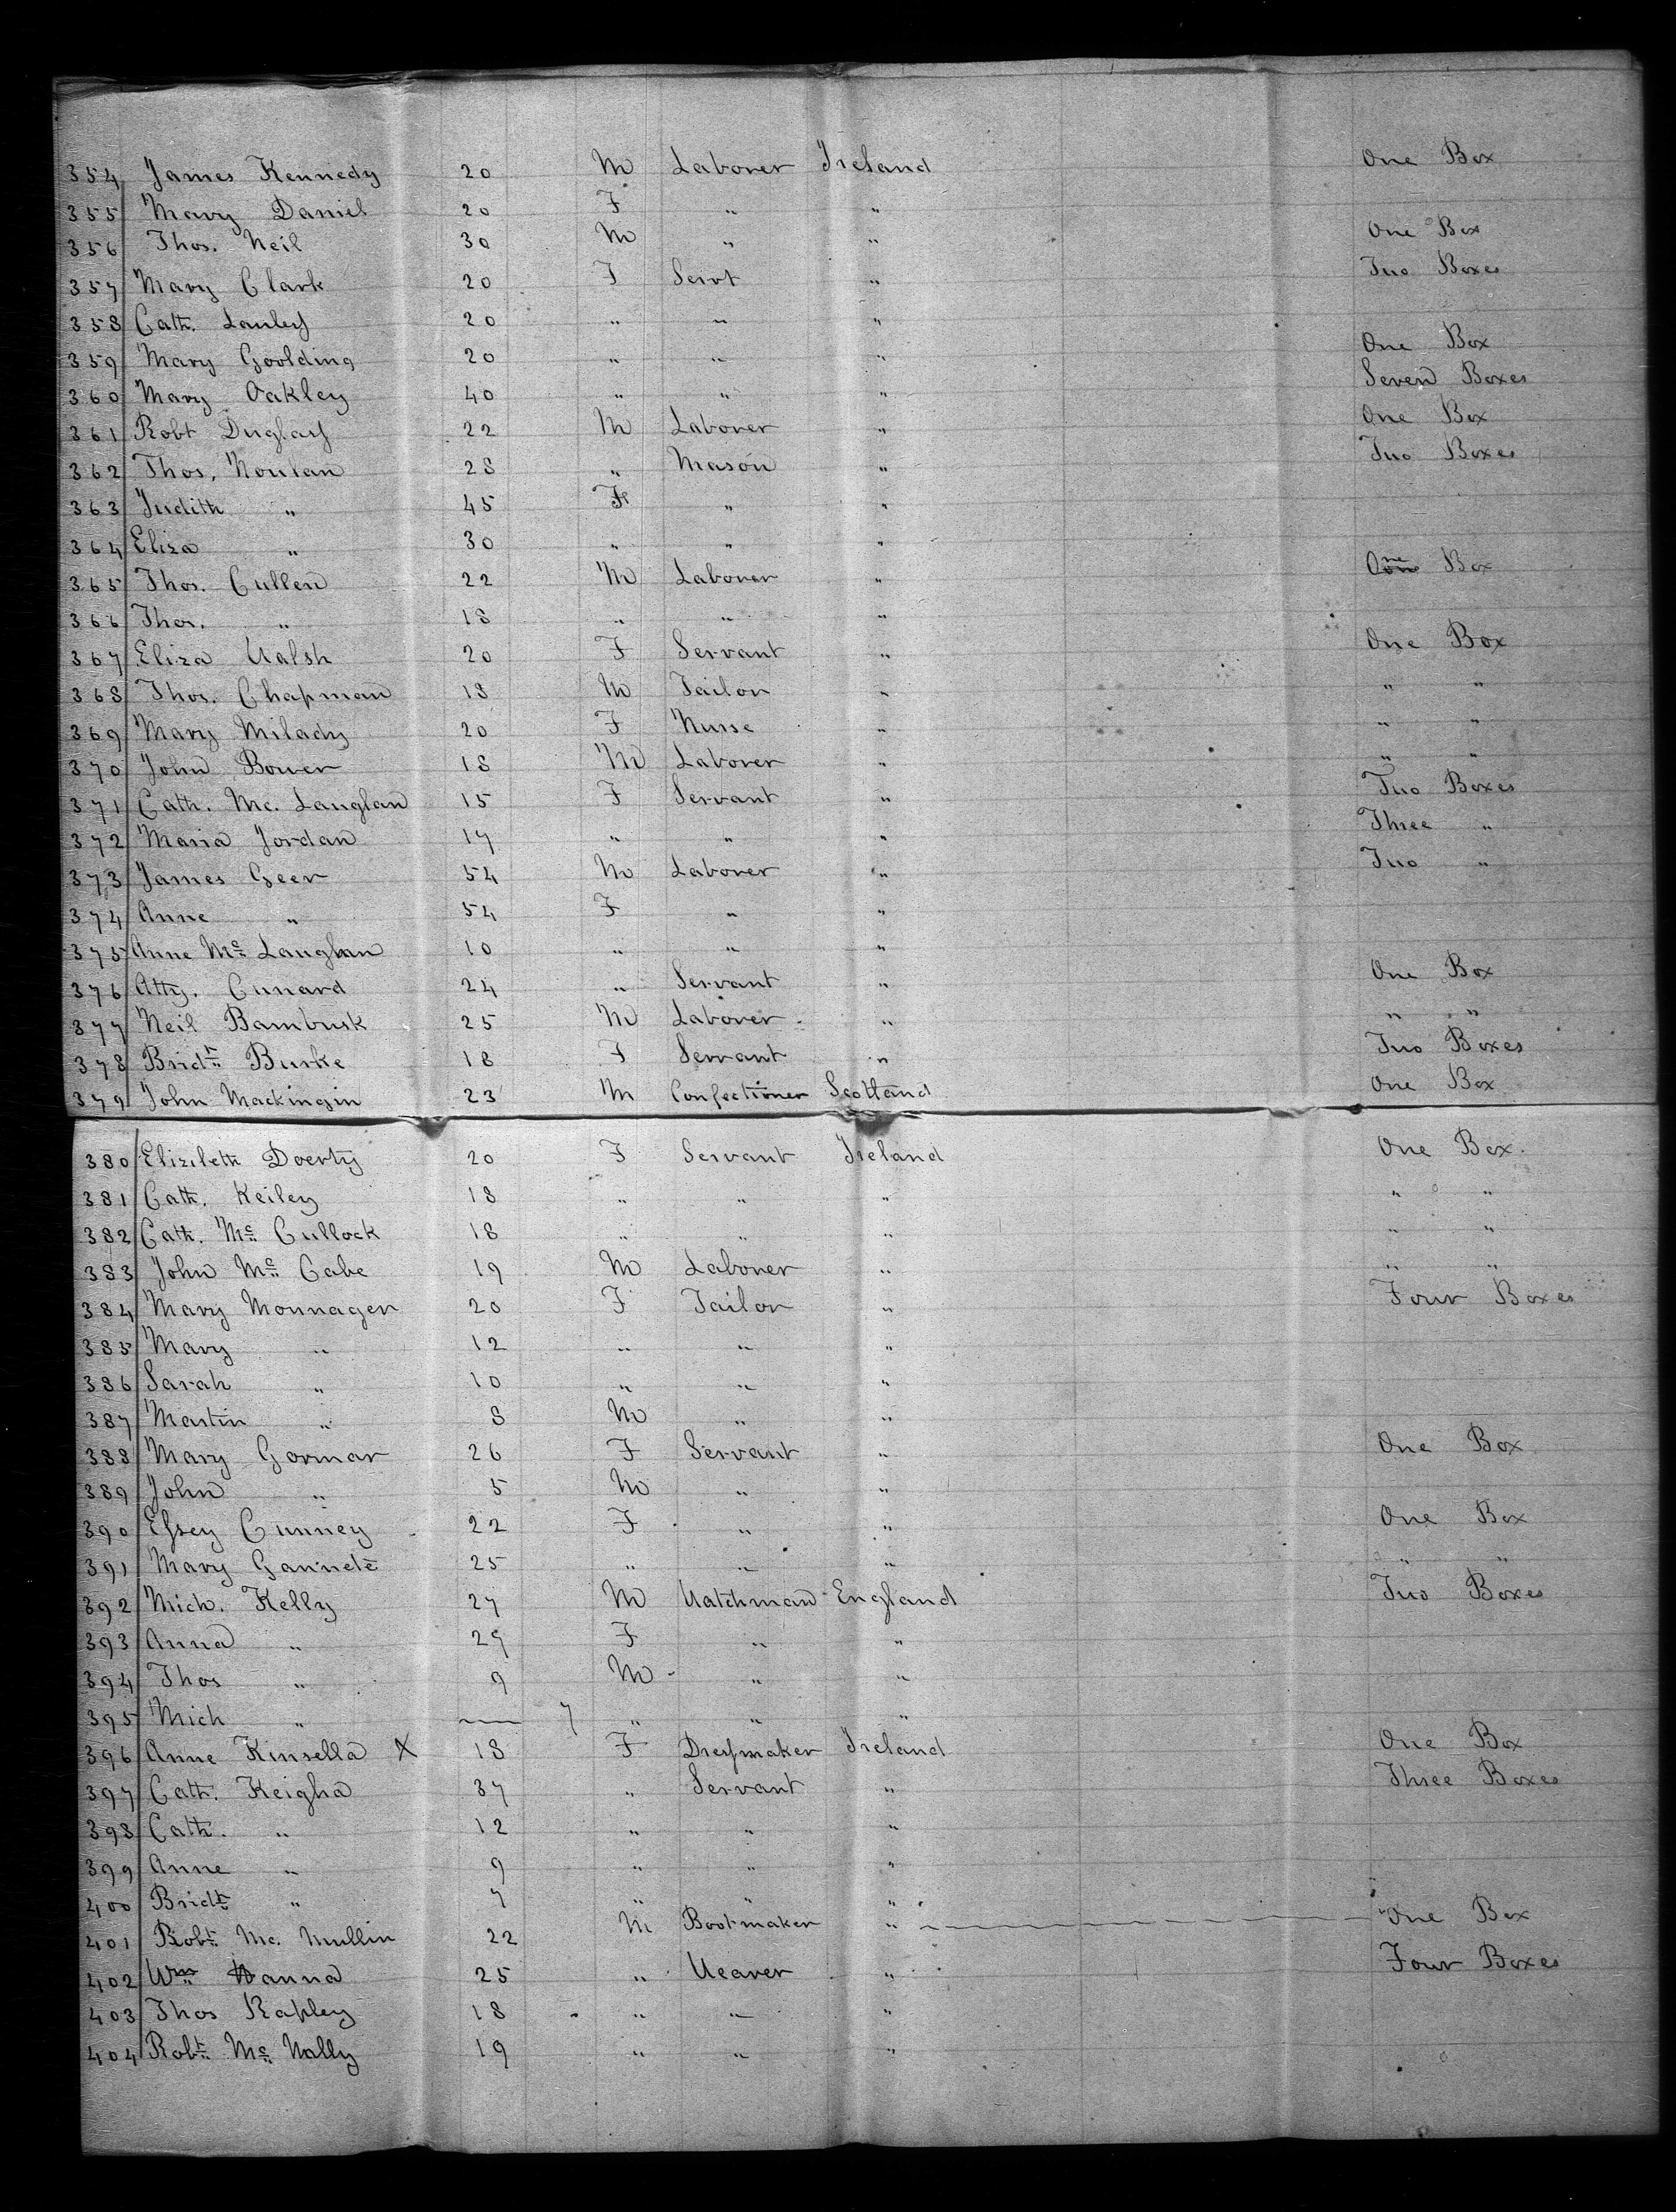 354 James Kennedy 20 M Laborer Ireland One Box
355 Mary Daniel 20 F " "
356 Thos. Neil 30 M " " One Box
357 Mary Clark 20 F Servt " Two Boxes
358 Cath. Lauless 20 " " "
359 Mary Goolding 20 " " " One Box
360 Mary Oakley 40 " " " Seven Boxes
361 Robt Duglass 22 M Laborer " One Box
362 Thos. Noulan 28 " Mason " Two Boxes
363 Judith " 45 F " "
364 Eliza " 30 " " "
365 Thos. Cullen 22 M Laborer " One Box
366 Thos. " 18 " " "
367 Eliza Walsh 20 F Servant " One Box
368 Thos. Chapman 18 M Tailor " " "
369 Mary Milady 20 F Nurse " " "
370 John Bower 18 M Laborer " " "
371 Cath. Mc. Lauglan 15 F Servant " Two Boxes
372 Maria Jordan 17 " " " Three "
373 James Geer 54 M Laborer " Two "
374 Anne " 54 F " "
375 Anne Mc Lauglan 10 " " "
376 Atty. Cunard 24 " Servant " One Box
377 Neil Bambusk 25 M Laborer " " "
378 Bridt Burke 18 F Servant " Two Boxes
379 John Mackingin 23 M Confectioner Scotland One Box
380 Elizibeth Doerty 20 F Servant Ireland One Box.
381 Cath. Keiley 18 " " " " "
382 Cath. Mc Cullock 18 " " " " "
383 John Mc Cabe 19 M Laborer " " "
384 Mary Monnager 20 F Tailor " Four Boxes
385 Mary " 12 " " "
386 Sarah " 10 " " "
387 Martin " 8 M " "
388 Mary Gormar 26 F Servant " One Box
389 John " 5 M " "
390 Essey Cunney 22 F " " One Box
391 Mary Gannete 25 " " " " "
392 Mich. Kelly 27 M Watchman England Two Boxes
393 Anna " 29 F " "
394 Thos " 9 M " "
395 Mich " — 7 " " "
396 Anne Kinsella X 18 F Dressmaker Ireland One Box
397 Cath. Keigha 37 " Servant " Three Boxes
398 Cath. " 12 " " "
399 Anne " 9 " " "
400 Bridt " 7 " " "
401 Robt Mc. Mullin 22 M Bootmaker " — One Box
402 Wm Hanna 25 " Weaver " Four Boxes
403 Thos Rapley 18 " " "
404 Robt Mc Nally 19 " " "